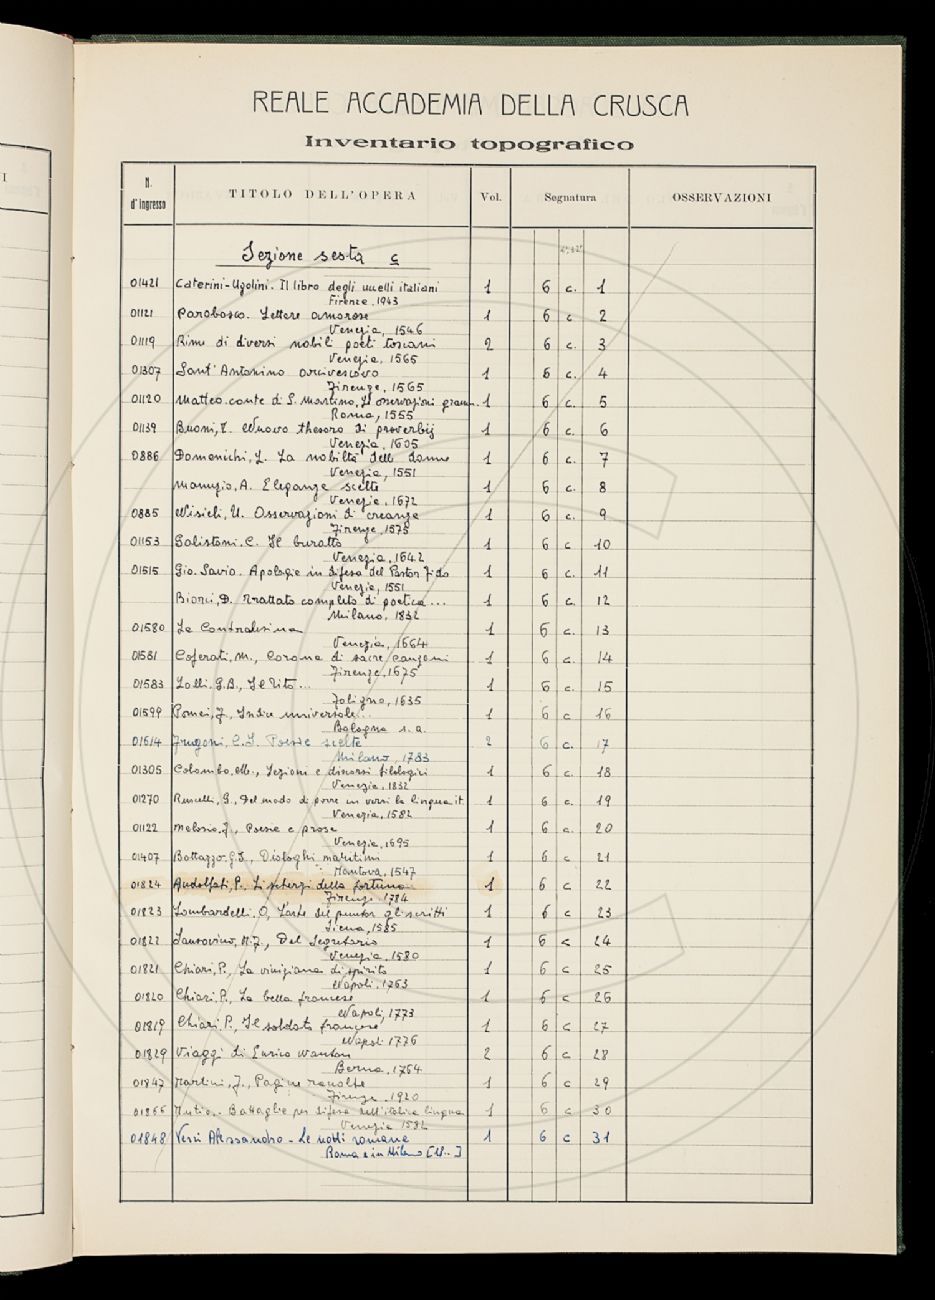 REALE ACCADEMIA DELLA CRUSCA
Inventario topografico
N. d'ingresso TITOLO DELL'OPERA Vol. Segnatura OSSERVAZIONI
Sezione sesta c
01421 Caterini-Ugolini. Il libro degli uccelli italiani 1 6 c. 1
Firenze, 1943
01121 Parabosco. Lettere amorose 1 6 c 2
Venezia, 1546
01119 Rime di diversi nobili poeti toscani 2 6 c. 3
Venezia, 1565
01307 Sant'Antonino arcivescovo 1 6 c. 4
Firenze, 1565
01120 Matteo conte di S. Martino, Le osservazioni gram. 1 6 c. 5
Roma, 1555
01139 Buoni, T. Nuovo thesoro di proverbij 1 6 c. 6
Venezia, 1605
0886 Domenichi, L. La nobiltà delle donne 1 6 c. 7
Venezia, 1551
Manuzio, A. Eleganze scelte 1 6 c. 8
Venezia, 1672
0885 Nisieli, U. Osservazioni di creanze 1 6 c. 9
Firenze, 1675
01153 Galistoni. C. Il buratto 1 6 c 10
Venezia, 1642
01515 Gio. Savio. Apologia in difesa del Pastor Fido 1 6 c. 11
Venezia, 1551
Biorci, D. Trattato completo di poetica ... 1 6 c. 12
Milano, 1832
01580 La Contralesina 1 6 c. 13
Venezia, 1664
01581 Coferati, M., Corona di sacre canzoni 1 6 c. 14
Firenze, 1675
01583 Lalli, G.B., Il Tito ... 1 6 c. 15
Foligno, 1635
01599 Pomei, F., Indice universale.. 1 6 c 16
Bologna s. a.
01614 Frugoni, C.I. Poesie scelte 2 6 c. 17
Milano, 1783
01305 Colombo, M., Lezioni e discorsi filologici 1 6 c. 18
Venezia, 1832
01270 Ruscelli, G., Del modo di porre in versi la lingua it. 1 6 c. 19
Venezia, 1582
01122 Melosio, F., Poesie e prose 1 6 c. 20
Venezia, 1695
01407 Bottazzo G.J., Dialoghi maritimi 1 6 c. 21
Mantova, 1547
01824 Andolfati, P., Li scherzi della fortuna 1 6 c 22
Firenze, 1784
01823 Lombardelli, O, L'arte del puntar gli scritti 1 6 c 23
Siena, 1585
01822 Sansovino, M.F., Del Segretario 1 6 c 24
Venezia, 1580
01821 Chiari, P., La viniziana di spirito 1 6 c 25
Napoli, 1763
01820 Chiari, P., La bella francese 1 6 c 26
Napoli, 1773
01819 Chiari, P., Il soldato francese 1 6 c 27
Napoli 1776
01829 Viaggi di Enrico Wanton 2 6 c 28
Berna, 1764
01847 Martini, F., Pagine raccolte 1 6 c 29
Firenze, 1920
01866 Mutio.- Battaglie per difesa dell'italica lingua 1 6 c 30
Venezia 1582
01848 Verri Alessandro - Le notti romane 1 6 c 31
Roma e in Milano